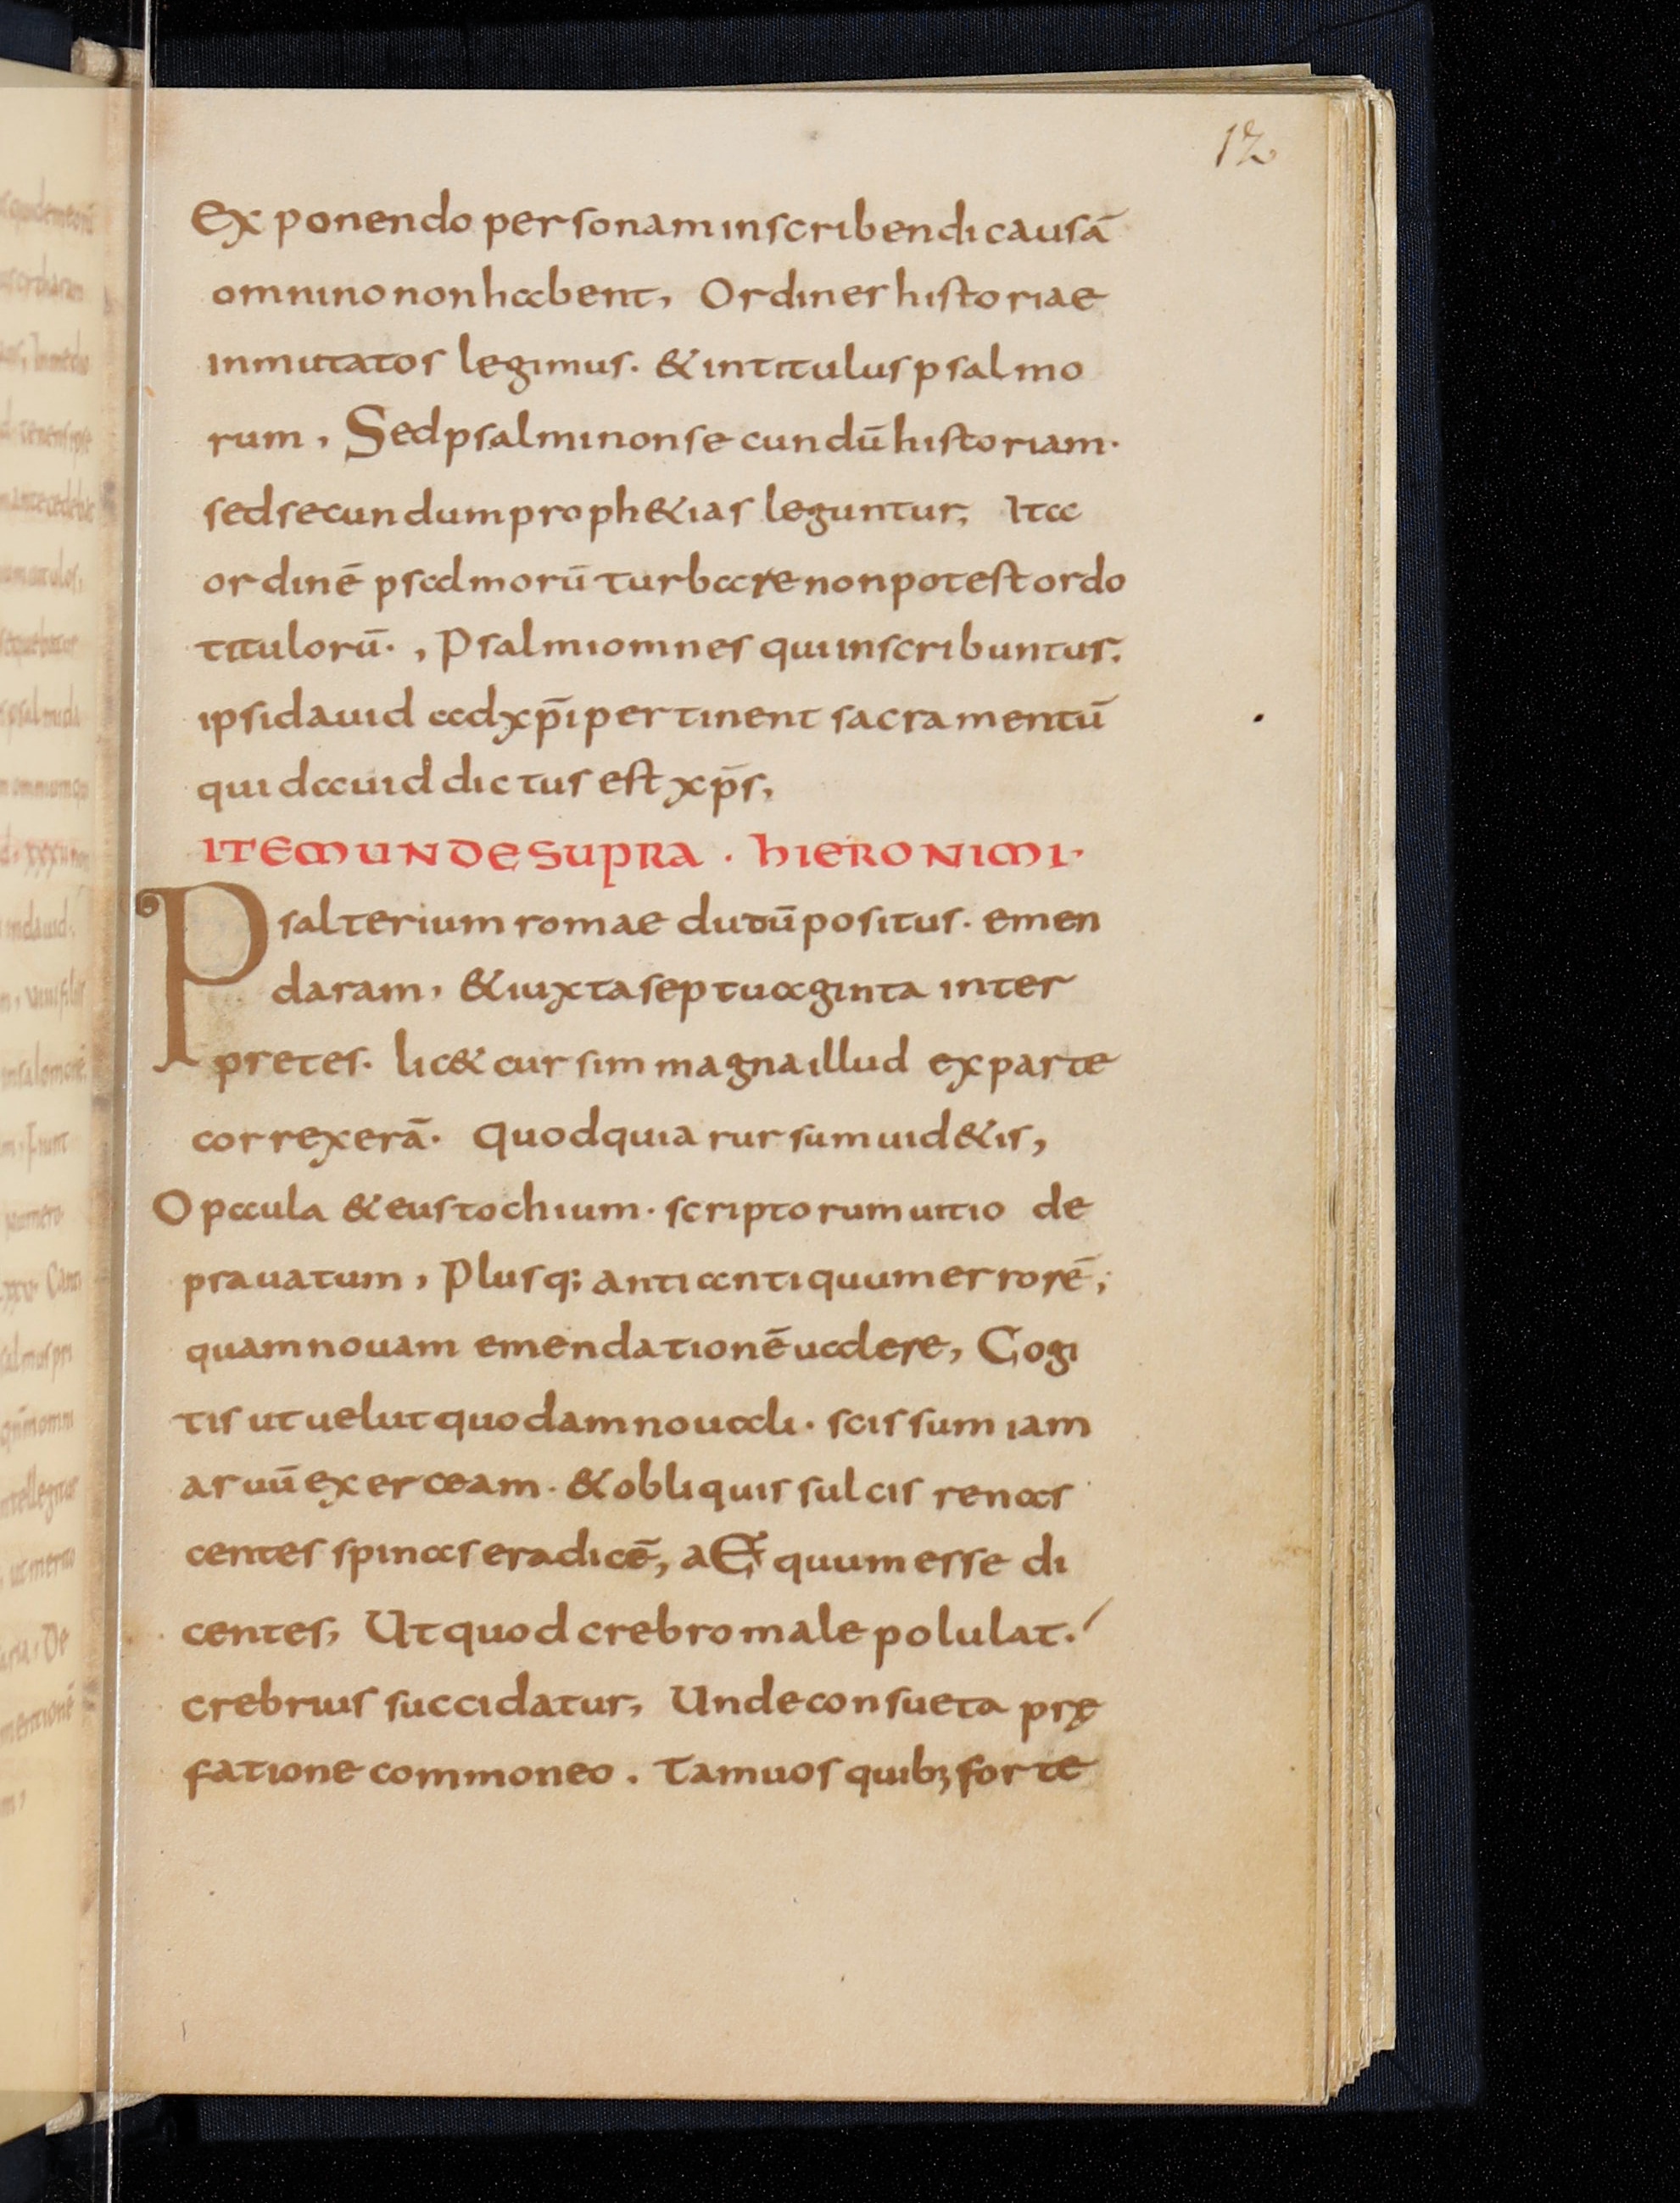 12
Exponendo personam inscribendi causā
omnino non habent, Ordines historiae
inmutatos legimus. & in titulus psalmo
rum, Sed psalmi non secundū historiam.
sed secundum proph&ias leguntur, Ita
ordinē psalmorū turbare non potest ordo
titulorū. , Psalmi omnes qui inscribuntus,
ipsi dauid ad xp̄i pertinent sacramentū
qui dauid dictus est xp̄s,
ITEM UNDE SUPRA . HIERONIMI.
Psalterium romae dudū positus. emen
daram, & iuxta septuaginta inter
pretes. lic& cursim magna illud ex parte
correxerā. Quod quia rursum uid&is,
O paula & eustochium. scriptorum uitio de
prauatum, Plusq; anti antiquum errorē,
quam nouam emendationē ualere, Cogi
tis ut uelut quodam nouali. scissum iam
aruū exerceam. & obliquis sulcis renas
centes spinas eradicē, aEquum esse di
centes, Ut quod crebro male polulat.
crebrius succidatur, Unde consueta prę
fatione commoneo. Tam uos quibꝫ forte